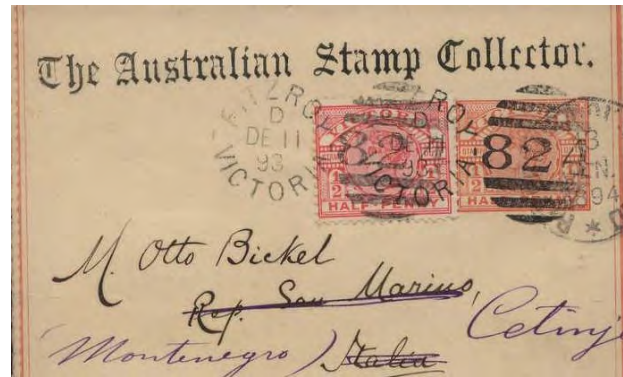 The Australian Stamp Collector.
FITZROY
D
DE 11
93
VICTORIA
82
1/2
HALF PENNY
FITZROY
D
DE 11
93
VICTORIA
82
94
M. Otto Bickel
Rep. San Marino,
Cetinje
(Montenegro) Italia